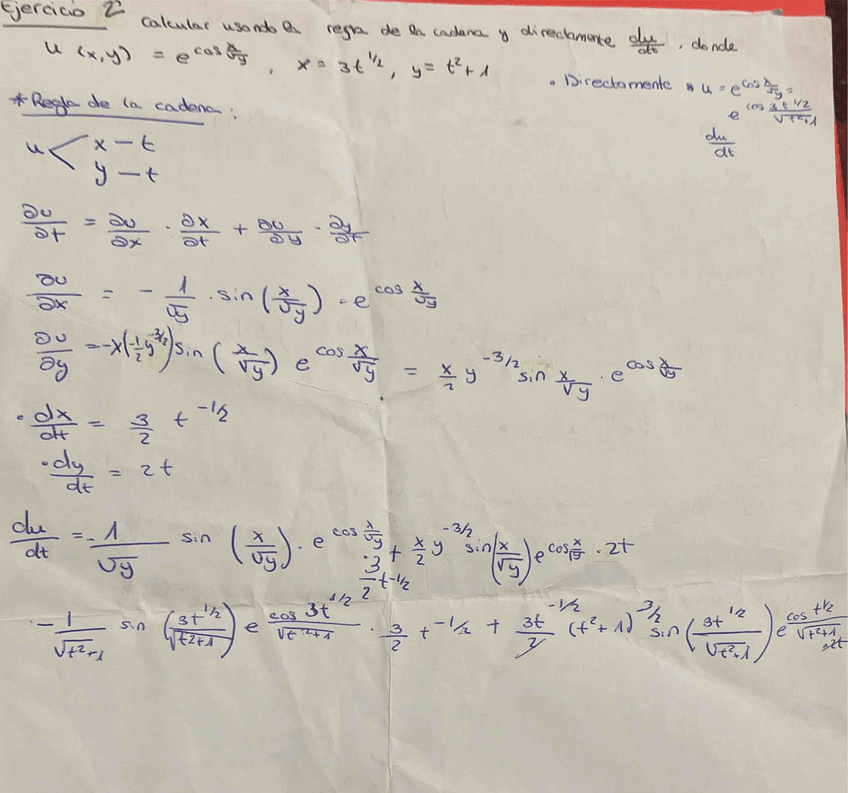 Ejercicio 2 calcular usando la regla de la cadena y directamente du/dt, donde
u (x,y) = e^(cos x/√y), x = 3t^(1/2), y = t²+1
• Directamente • u = e^(cos x/√y) =
e^(cos 3t^(1/2)/√(t²+1))
du/dt
* Regla de la cadena:
u < x – t
y – t
∂u/∂t = ∂u/∂x · ∂x/∂t + ∂u/∂y · ∂y/∂t
∂u/∂x = - 1/√y · sin (x/√y) · e^(cos x/√y)
∂u/∂y = -x(-1/2 y^(-3/2)) sin (x/√y) e^(cos x/√y) = x/2 y^(-3/2) sin x/√y · e^(cos x/√y)
• dx/dt = 3/2 t^(-1/2)
• dy/dt = 2t
du/dt = - 1/√y sin (x/√y) · e^(cos x/√y) · 3/2 t^(-1/2) + x/2 y^(-3/2) sin (x/√y) e^(cos x/√y) · 2t
- 1/√(t²+1) sin (3t^(1/2)/√(t²+1)) e^(cos 3t^(1/2)/√(t²+1)) · 3/2 t^(-1/2) + 3t^(-1/2)/2 (t²+1)^(-3/2) sin (3t^(1/2)/√(t²+1)) e^(cos t^(1/2)/√(t²+1)) · 2t